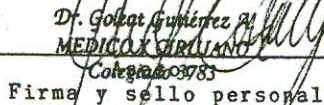 Dr. Golcat Gutiérrez A.
MEDICO X CIRUJANO
Colegiado 3783
Firma y sello personal